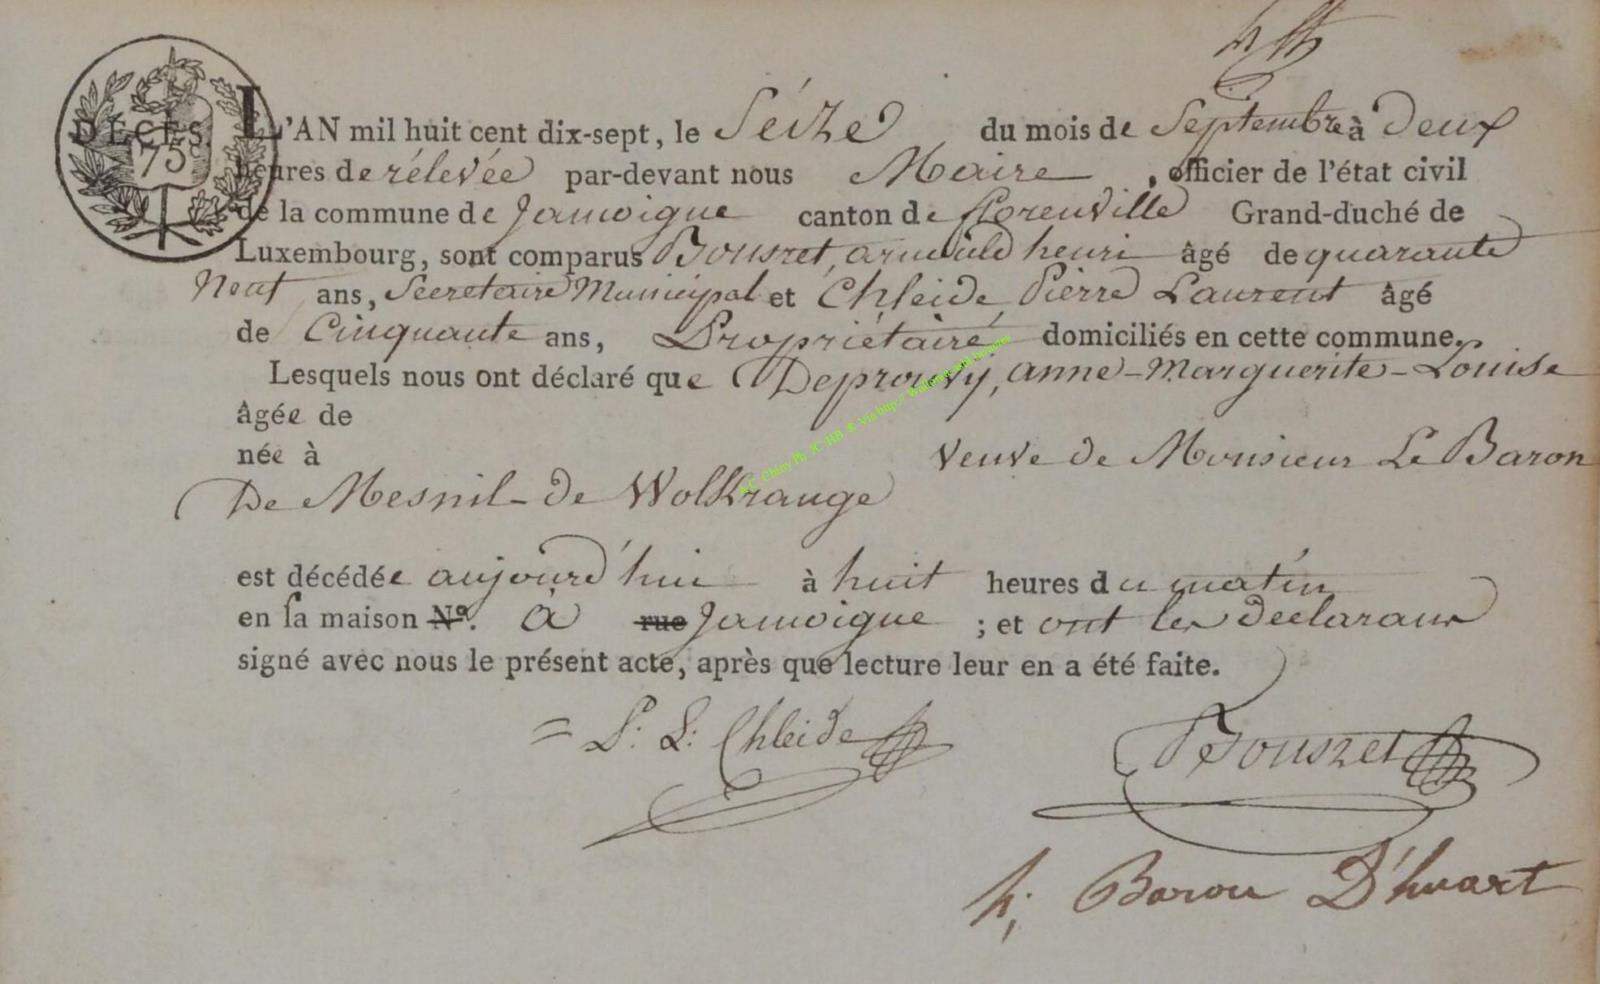 DÉCÈS
75
L'AN mil huit cent dix-sept, le Séize du mois de Septembre à deux
heures de rélevée par-devant nous Maire, officier de l'état civil
de la commune de Jamoigne canton de florenville Grand-duché de
Luxembourg, sont comparus Bousret, arnould henri âgé de quarante
Neuf ans, Secretaire Municipal et Chleide, Pierre Laurent âgé
de Cinquante ans, Propriétaire domiciliés en cette commune.
Lesquels nous ont déclaré que Deprouvy, anne-Marguerite-Louise
âgée de
née à veuve de Monsieur Le Baron
De Mesnil-de Wolkrange
est décédée aujourd'hui à huit heures du matin
en sa maison N.º à rue Jamoigne ; et ont les declarans
signé avec nous le présent acte, après que lecture leur en a été faite.
= P: L: Chleide
Bousret
h; Baron D'huart